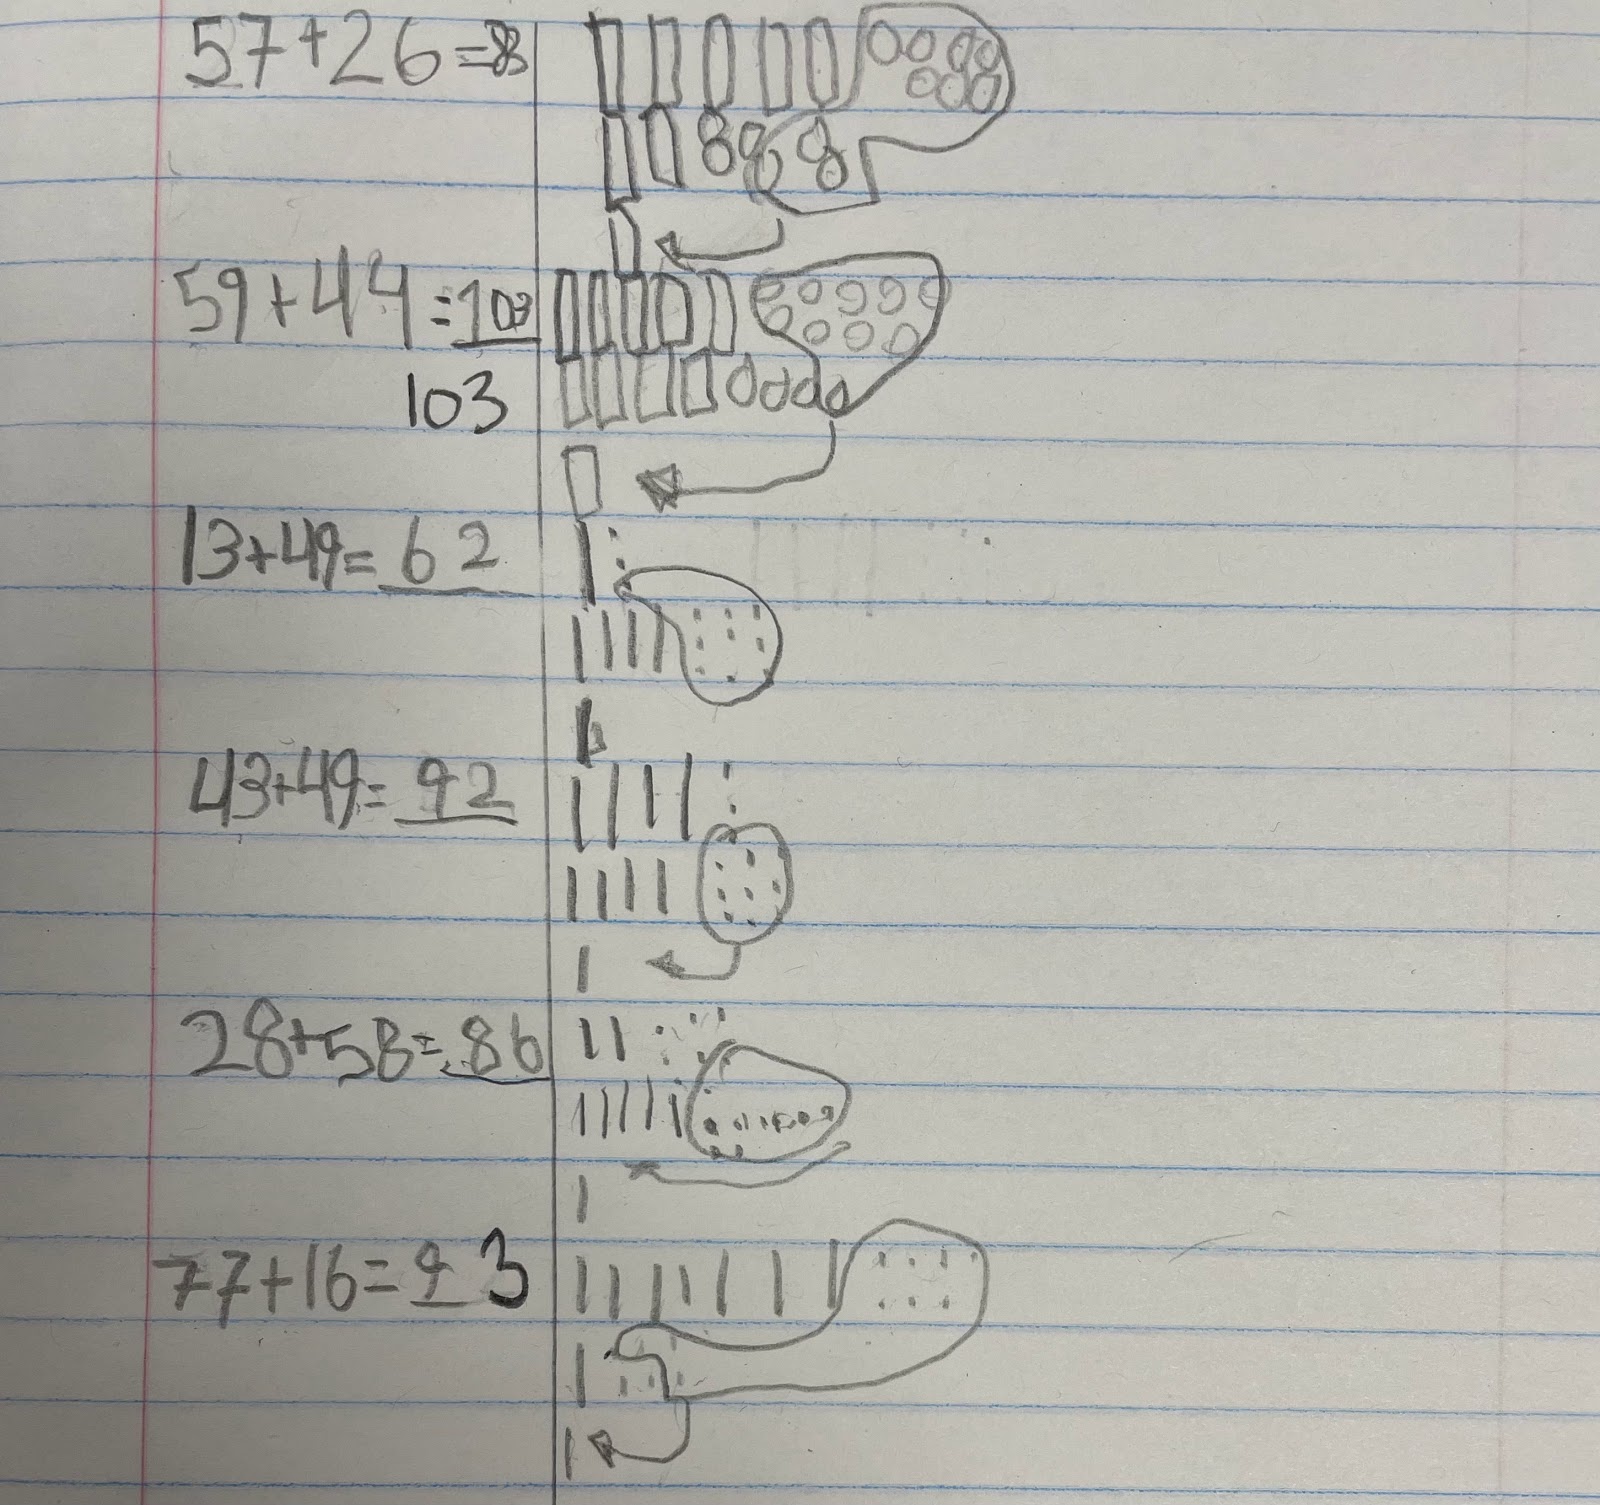 57+26=83
59+44=103
103
13+49=62
43+49=92
28+58=86
77+16=93